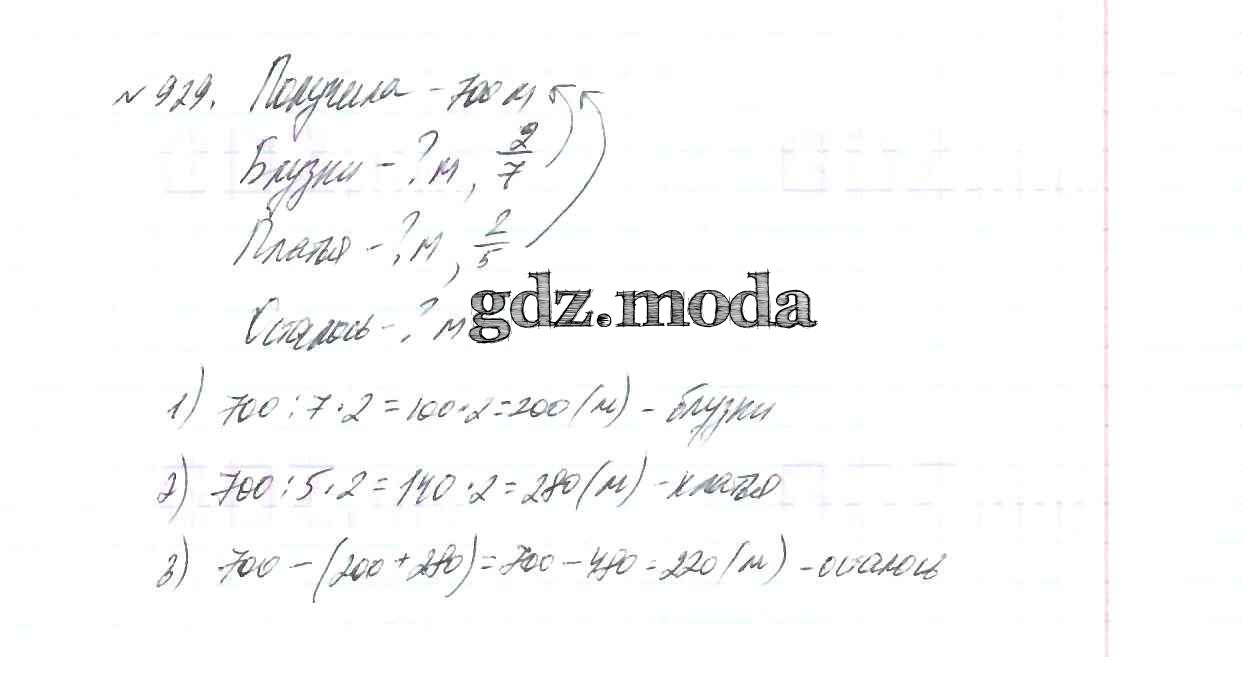 № 929. Получила - 700 м
Блузки - ? м, 2/7
Платья - ? м, 2/5
gdz.moda
Осталось - ? м
1) 700 : 7 · 2 = 100 · 2 = 200 (м) - блузки
2) 700 : 5 · 2 = 140 · 2 = 280 (м) - платья
3) 700 - (200 + 280) = 700 - 480 = 220 (м) - осталось